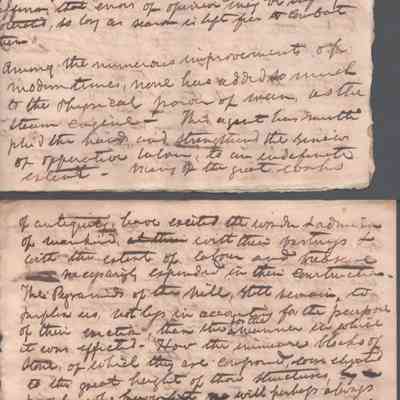 errors of opinion may be
so long as reason is left free to combat
Among the numerous improvements of
modern times, none has added so much
to the Physical power of man, as the
steam engine - This agent has multi
plied the hands, and strengthened the sinews
of operative labour, to an indefinite
extent - Many of the great works
of antiquity, have excited the wonder & admiration
of mankind, with their vastness &
with the extent of labour and treasure
necessarily expended in their construction.
The Pyramids of the Nile, still remain, to
surprise us, not less in accounting for the purpose
of their erection, than the manner in which
it was effected. How the immense blocks of
stone, of which they are composed, were elevated
to the great height of those structures,
will perhaps always